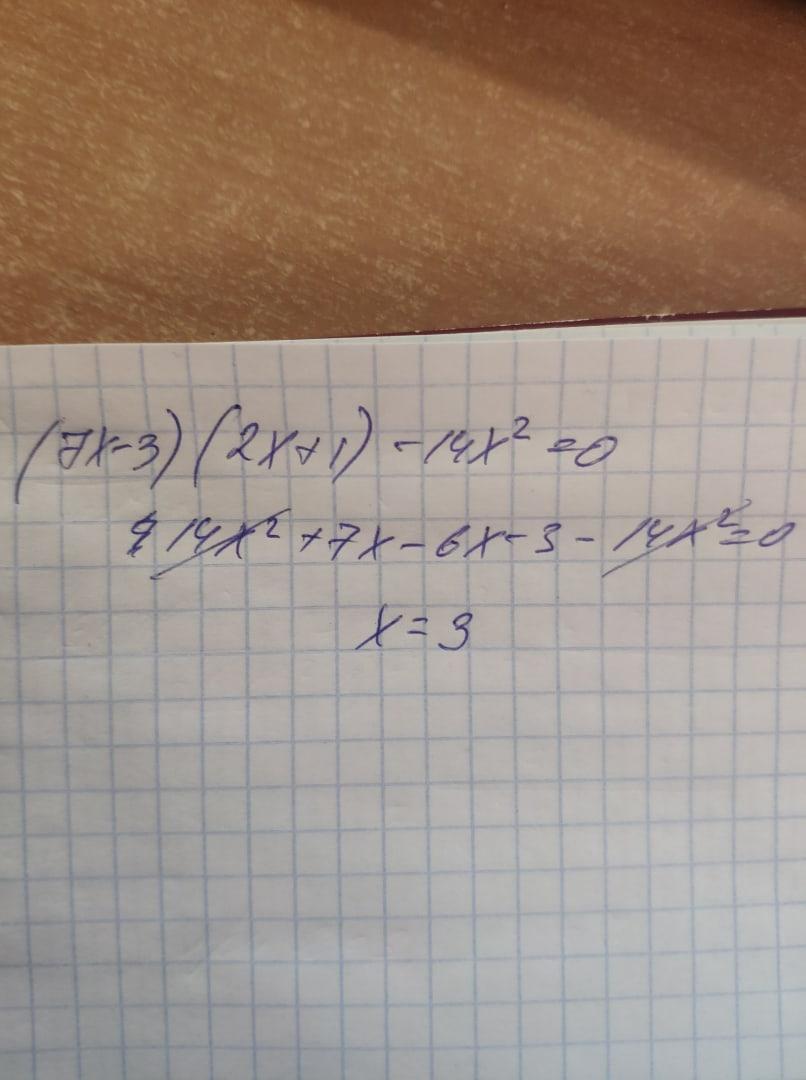 (7x-3)(2x+1)-14x²=0
14x²+7x-6x-3-14x²=0
x=3